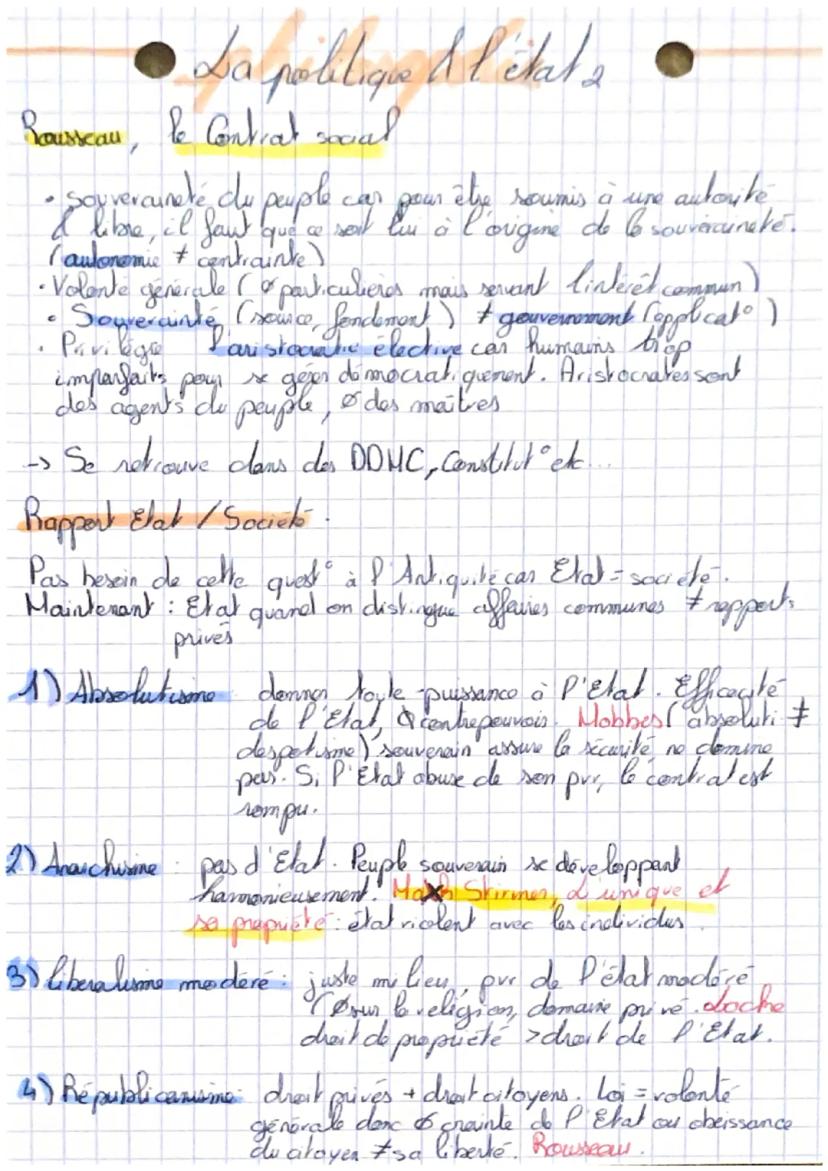 La politique & l'état 2
Rousseau, le Contrat social
• souveraineté du peuple car pour être soumis à une autorité
& libre, il faut que ce soit lui à l'origine de la souveraineté.
(autonomie ≠ contrainte)
• Volonté générale (ø particulières mais servant l'intérêt commun)
• Souverainté (source, fondement) ≠ gouvernement (applicat°)
• Privilégie l'aristocratie élective car humains trop
imparfaits pour se gérer démocratiquement. Aristocrates sont
des agents du peuple, ø des maîtres
-> Se retrouve dans des DDHC, Constitut° etc...
Rapport Etat / Société.
Pas besoin de cette quest° à l'Antiquité car Etat = société.
Maintenant : Etat quand on distingue affaires communes ≠ rapports
privés
1) Absolutisme donner toute-puissance à l'Etat. Efficacité
de l'Etat, ø contrepouvoir. Hobbes (absoluti ≠
despotisme) souverain assure la sécurité ne domine
pas. Si l'Etat abuse de son pvr, le contrat est
rompu.
2) Anarchisme : pas d'Etat. Peuple souverain se développant
harmonieusement. Max Stirner, L'unique et
sa propriété : état violent avec les individus.
3) libéralisme modéré : juste milieu, pvr de l'état modéré
(ø sur la religion, domaine privé. Locke
droit de propriété > droit de l'Etat.
4) Républicanisme : droit privés + droit citoyens. Loi = volonté
générale donc ø crainte de l'Etat ou obeissance
du citoyen ≠ sa liberté. Rousseau.